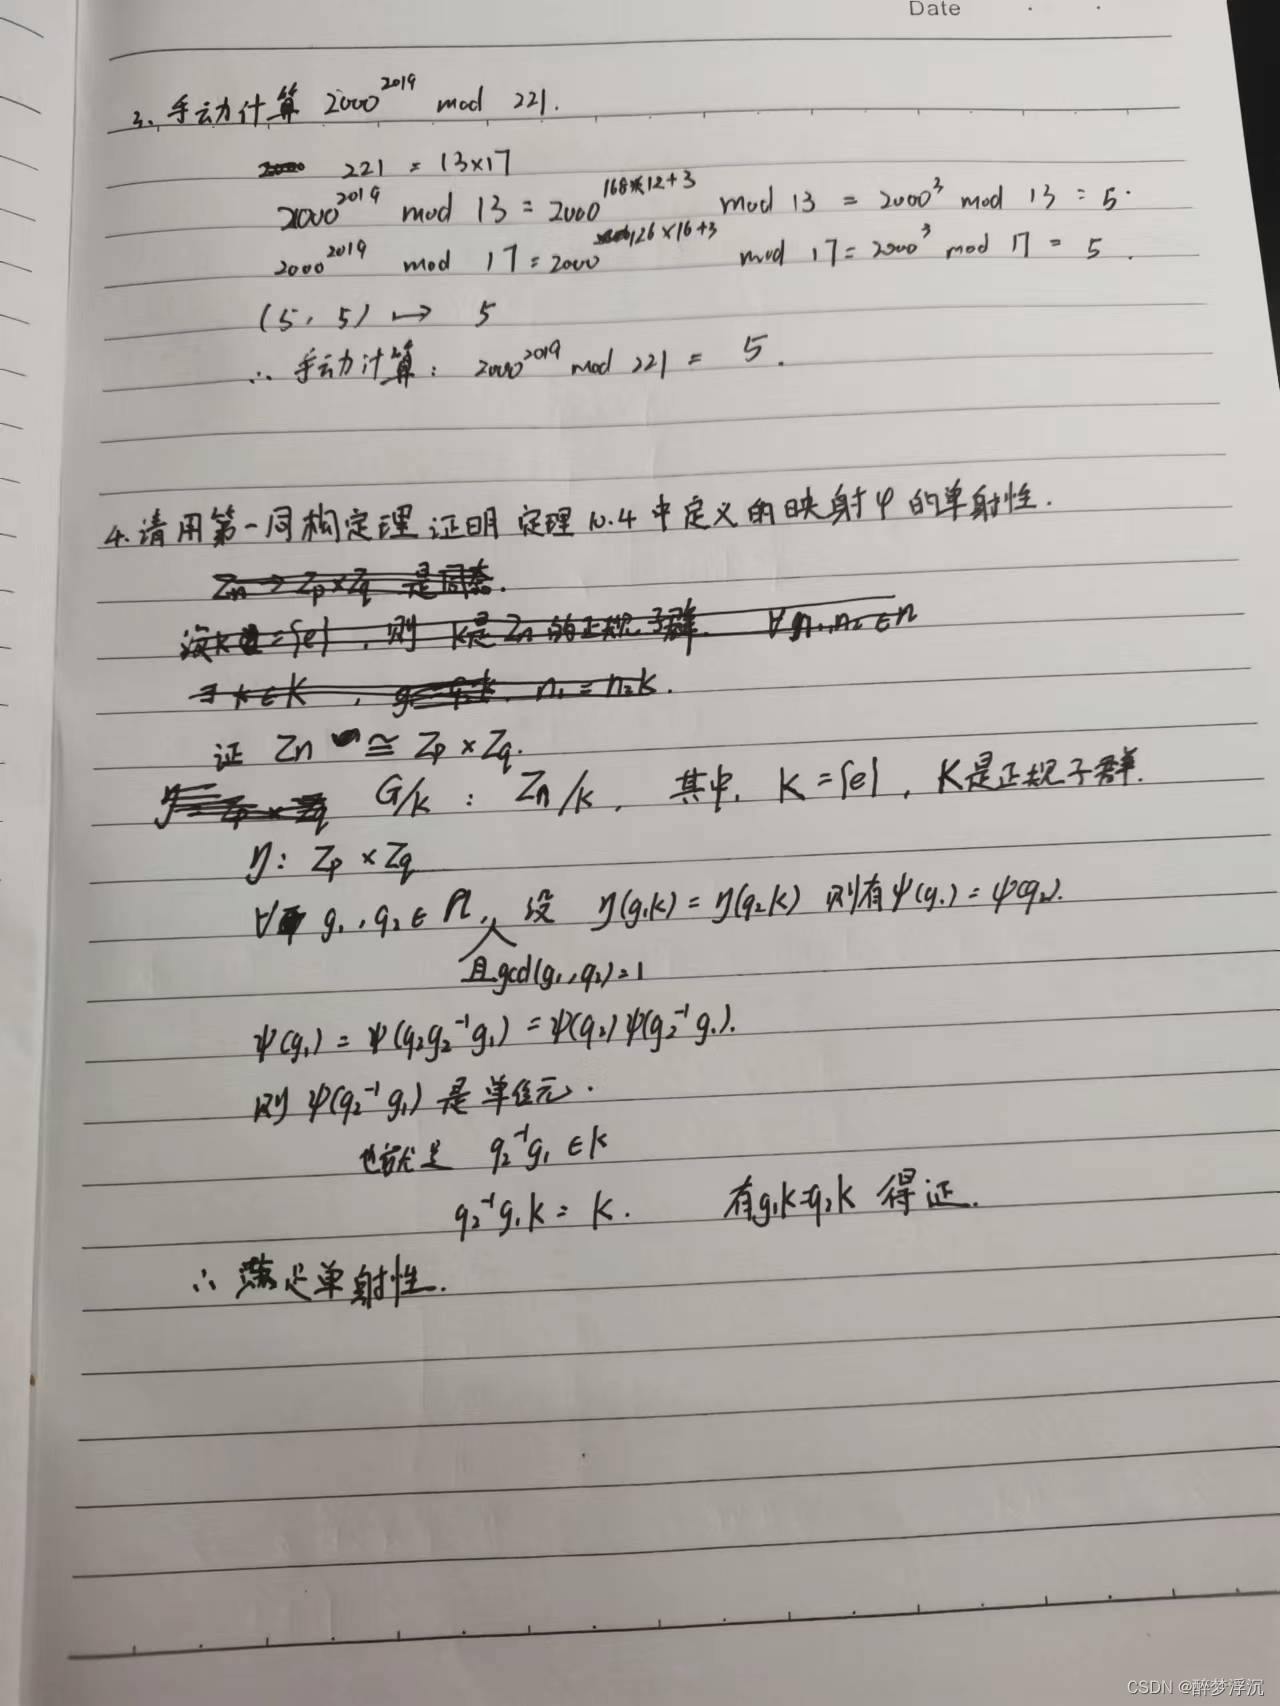 Date
3. 手动计算 2000^2019 mod 221.
221 = 13×17
2000^2019 mod 13 = 2000^168×12+3 mod 13 = 2000^3 mod 13 = 5.
2000^2019 mod 17 = 2000^126×16+3 mod 17 = 2000^3 mod 17 = 5.
(5, 5) ↦ 5
∴ 手动计算: 2000^2019 mod 221 = 5.
4. 请用第一同构定理证明定理10.4中定义的映射φ的单射性.
Zn → Zp×Zq 是同态.
设K={e}, 则 K是Zn的正规子群. ∀n1,n2∈n
∃k∈K, n1=n2k.
证 Zn ≅ Zp×Zq.
G/K : Zn/K, 其中, K={e}, K是正规子群.
η: Zp×Zq
∀ g1,g2∈n, 设 η(g1K)=η(g2K) 则有ψ(g1)=ψ(g2).
且gcd(g1,g2)=1
ψ(g1)=ψ(g2g2^-1g1)=ψ(g2)ψ(g2^-1g1).
则 ψ(g2^-1g1) 是单位元.
也就是 g2^-1g1∈K
g2^-1g1K=K. 有g1K=g2K 得证.
∴ 满足单射性.
CSDN @醉梦浮沉